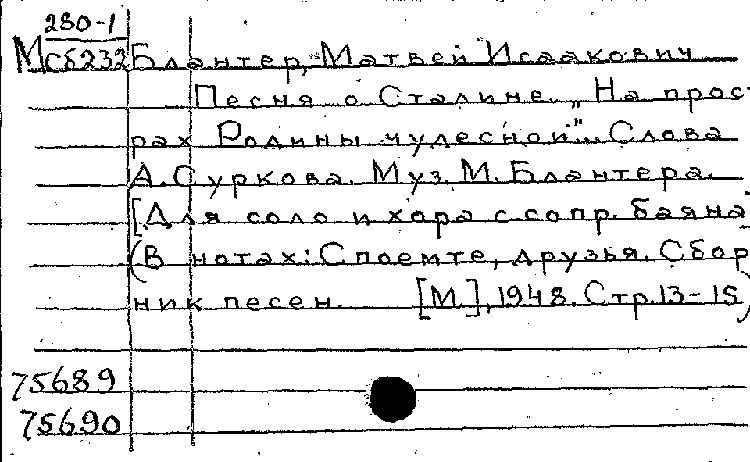 280-1
Мсб232 Блантер, Матвей Исаакович
Песня о Сталине. „На прос-
рах Родины чудесной"... Слова
А. Суркова. Муз. М. Блантера.
[Для соло и хора с сопр. баяна]
(В нотах: Споемте, друзья. Сбор
ник песен. [М.], 1948. Стр. 13-15)
75689
75690